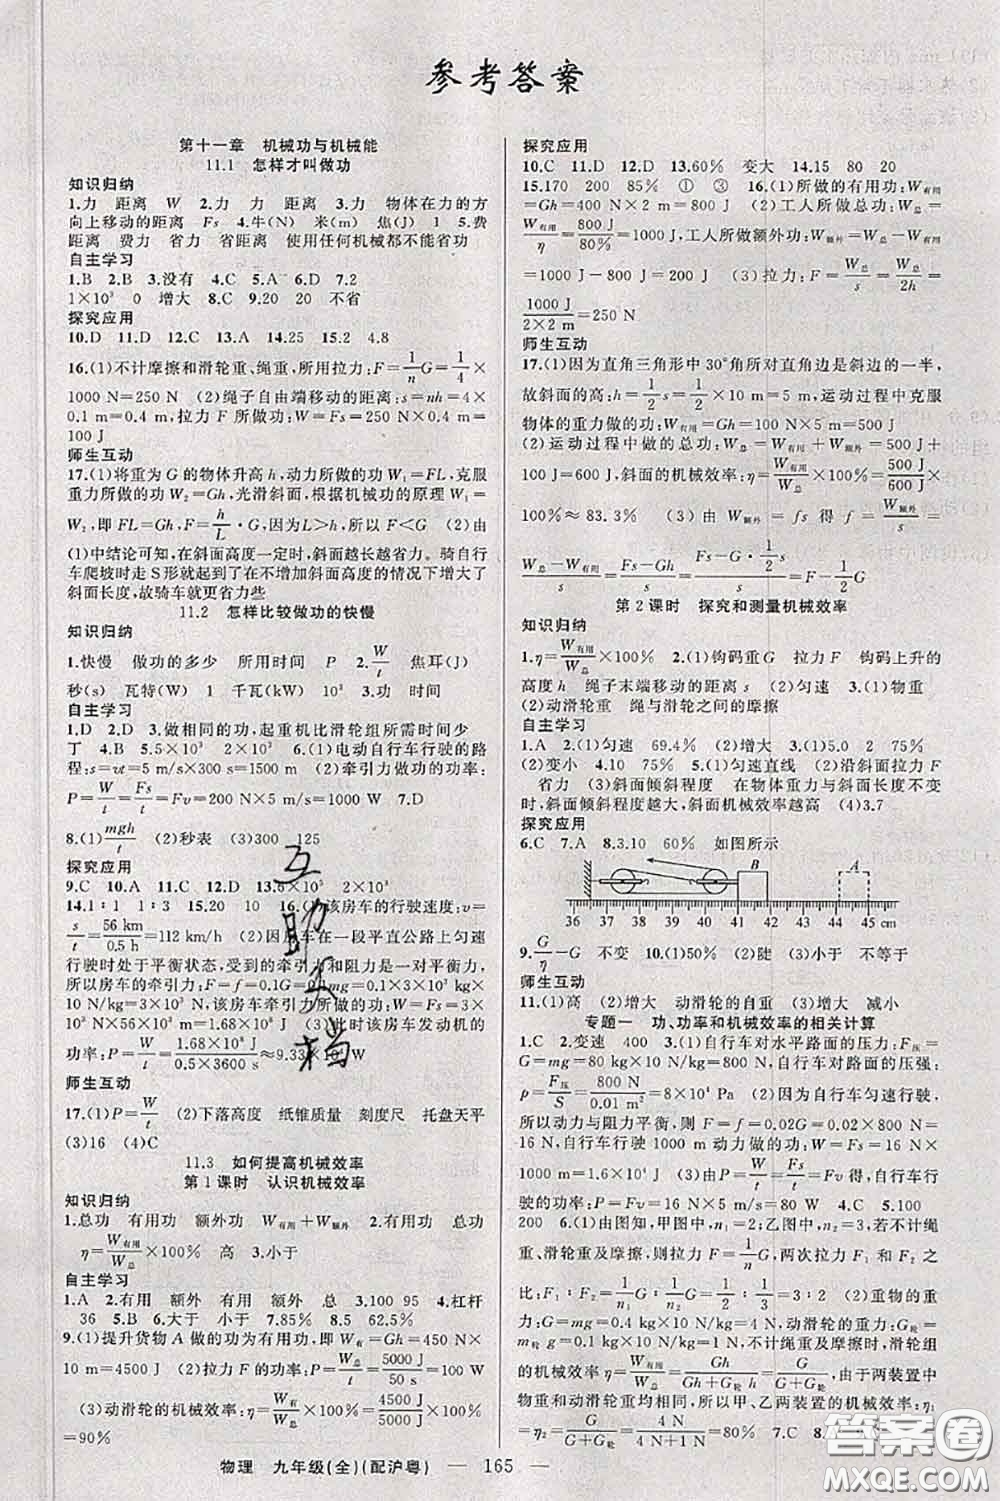 参考答案
第十一章 机械功与机械能
11.1 怎样才叫做功
知识归纳
1.力 距离 W 2.力 力 距离 3.力 物体在力的方
向上移动的距离 Fs 4.牛(N) 米(m) 焦(J) 1 5.费
距离 费力 省力 省距离 使用任何机械都不能省功
自主学习
1.B 2.B 3.没有 4.C 5.A 6.D 7.2
1×10³ 0 增大 8.C 9.20 20 不省
探究应用
10.D 11.D 12.C 13.A 14.25 15.2 4.8
16.(1)不计摩擦和滑轮重、绳重,所用拉力:F=1/n G=1/4×
1000 N=250 N (2)绳子自由端移动的距离:s=nh=4×
0.1 m=0.4 m,拉力 F 所做功:W=Fs=250 N×0.4 m=
100 J
师生互动
17.(1)将重为 G 的物体升高 h,动力所做的功 W₁=FL,克服
重力所做的功 W₂=Gh,光滑斜面,根据机械功的原理 W₁=
W₂,即 FL=Gh,F=h/L·G,因为 L>h,所以 F<G (2)由
(1)中结论可知,在斜面高度一定时,斜面越长越省力。骑自行
车爬坡时走 S 形就起到了在不增加斜面高度的情况下增大了
斜面长度,故骑车就更省力些
11.2 怎样比较做功的快慢
知识归纳
1.快慢 做功的多少 所用时间 P 2.W/t 焦耳(J)
秒(s) 瓦特(W) 1 千瓦(kW) 10³ 3.功 时间
自主学习
1.D 2.D 3.做相同的功,起重机比滑轮组所需时间少
丁 4.B 5.5×10³ 2×10³ 6.(1)电动自行车行驶的路
程:s=vt=5 m/s×300 s=1500 m (2)牵引力做功的功率:
P=W/t=Fs/t=Fv=200 N×5 m/s=1000 W 7.D
8.(1)mgh/t (2)秒表 (3)300 125
探究应用
9.C 10.A 11.C 12.D 13.6×10⁵ 2×10³
14.1∶1 1∶3 15.20 10 16.(1)该房车的行驶速度:v=
s/t=56 km/0.5 h=112 km/h (2)因房车在一段平直公路上匀速
行驶时处于平衡状态,受到的牵引力和阻力是一对平衡力,
所以房车的牵引力:F=f=0.1G=0.1mg=0.1×3×10³ kg×
10 N/kg=3×10³ N;该房车牵引力所做的功:W=Fs=3×
10³ N×56×10³ m=1.68×10⁸ J (3)此时该房车发动机的
功率:P=W/t=1.68×10⁸ J/0.5×3600 s≈9.33×10⁴ W
师生互动
17.(1)P=W/t (2)下落高度 纸锥质量 刻度尺 托盘天平
(3)16 (4)C
11.3 如何提高机械效率
第 1 课时 认识机械效率
知识归纳
1.总功 有用功 额外功 W有用+W额外 2.有用功 总功
η=W有用/W总×100% 高 3.小于
自主学习
1.A 2.有用 额外 有用 额外 总 3.100 95 4.杠杆
36 5.B 6.大于 小于 7.85% 8.5 62.5%
9.(1)提升货物 A 做的功为有用功,即 W有=Gh=450 N×
10 m=4500 J (2)拉力 F 的功率:P=W总/t=5000 J/50 s=100 W
(3)动滑轮的机械效率:η=W有/W总×100%=4500 J/5000 J×100%
=90%
探究应用
10.C 11.D 12.D 13.60% 变大 14.15 80 20
15.170 200 85% ① ③ 16.(1)所做的有用功:W有用
=Gh=400 N×2 m=800 J (2)工人所做总功:W总=
W有用/η=800 J/80%=1000 J,工人所做额外功:W额外=W总-W有用
=1000 J-800 J=200 J (3)拉力:F=W总/s=W总/2h=
1000 J/2×2 m=250 N
师生互动
17.(1)因为直角三角形中 30°角所对直角边是斜边的一半,
故斜面的高:h=1/2 s=1/2×10 m=5 m,运动过程中克服
物体的重力做的功:W有用=Gh=100 N×5 m=500 J
(2)运动过程中做的总功:W总=W有用+W额外=500 J+
100 J=600 J,斜面的机械效率:η=W有用/W总×100%=500 J/600 J×
100%≈83.3% (3)由 W额外=fs 得 f=W额外/s=
W总-W有用/s=Fs-Gh/s=Fs-G·1/2 s/s=F-1/2 G
第 2 课时 探究和测量机械效率
知识归纳
1.η=W有用/W总×100% 2.(1)钩码重G 拉力F 钩码上升的
高度 h 绳子末端移动的距离 s (2)匀速 3.(1)物重
(2)动滑轮重 绳与滑轮之间的摩擦
自主学习
1.A 2.(1)匀速 69.4% (2)增大 3.(1)5.0 2 75%
(2)变小 4.60 75% 5.(1)匀速直线 (2)沿斜面方向拉力
省力 (3)斜面倾斜程度 在物体重力与斜面粗糙程度一定
时,斜面倾斜程度越大,斜面机械效率越高 (4)3.7
探究应用
6.C 7.A 8.3.10 60% 如图所示
B A
36 37 38 39 40 41 42 43 44 45 cm
9.G/η-G 不变 10.(1)50% (2)陡 (3)小于 不等于
师生互动
11.(1)高 (2)增大 动滑轮的自重 (3)增大 减小
专题一 功、功率和机械效率的相关计算
1.C 2.变速 400 3.(1)自行车对水平路面的压力:F压=
G=mg=80 kg×10 N/kg=800 N,自行车对路面的压强:
p=F压/S=800 N/0.01 m²=8×10⁴ Pa (2)自行车匀速行驶,
所以动力与阻力平衡,则 F=f=0.02G=0.02×800 N=
16 N,自行车行驶 1000 m 动力做的功:W=Fs=16 N×
1000 m=1.6×10⁴ J (3)由 P=W/t=Fs/t=Fv 得,自行车行
驶的功率:P=Fv=16 N×5 m/s=80 W 4.C 5.100
200 6.(1)由图知,甲图中,n₁=2;乙图中,n₂=3,若不计绳
重、滑轮重及摩擦,则拉力 F=1/n G,两次拉力 F₁ 和 F₂ 之
比:F₁∶F₂=1/n₁ G∶1/n₂ G=1/2∶1/3=3∶2 (2)重物的重
力:G=mg=0.4 kg×10 N/kg=4 N,动滑轮的重力:G轮=
m轮g=0.1 kg×10 N/kg=1 N,不计绳重及摩擦时,滑轮组
的机械效率=W有用/W总=Gh/Gh+G轮h=G/G+G轮,由于两装置中
物重和动滑轮重均相同,所以甲、乙两装置的机械效率:η₁
=η₂=G/G+G轮×100%=4 N/4 N+1 N×100%=80% 7.C 8.
物理 九年级(全)(配沪粤) — 165 —
互助文档
答案圈
MXQE.COM